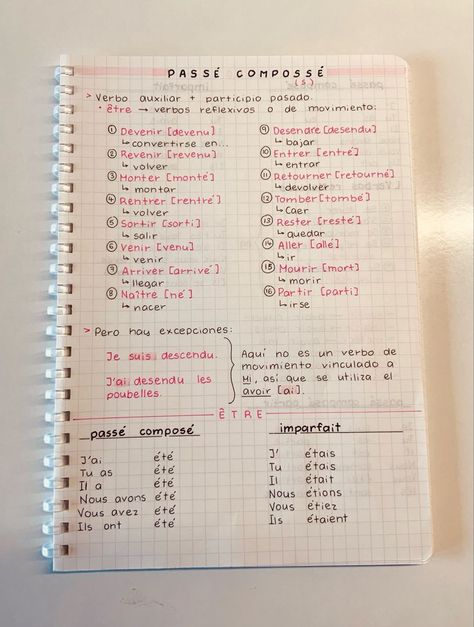 PASSÉ COMPOSSÉ
(s)
> Verbo auxiliar + participio pasado.
• être → verbos reflexivos o de movimiento:
① Devenir [devenu]
↳ convertirse en...
② Revenir [revenu]
↳ volver
③ Monter [monté]
↳ montar
④ Rentrer [rentré]
↳ volver
⑤ Sortir [sorti]
↳ salir
⑥ Venir [venu]
↳ venir
⑦ Arriver [arrivé]
↳ llegar
⑧ Naître [né]
↳ nacer
⑨ Desendre [desendu]
↳ bajar
⑩ Entrer [entré]
↳ entrar
⑪ Retourner [retourné]
↳ devolver
⑫ Tomber [tombé]
↳ Caer
⑬ Rester [resté]
↳ quedar
⑭ Aller [allé]
↳ ir
⑮ Mourir [mort]
↳ morir
⑯ Partir [parti]
↳ irse
> Pero hay excepciones:
Je suis descendu.
J'ai desendu les
poubelles.
Aquí no es un verbo de
movimiento vinculado a
MI, así que se utiliza el
avoir [ai].
ÊTRE
passé composé
J'ai été
Tu as été
Il a été
Nous avons été
Vous avez été
Ils ont été
imparfait
J' étais
Tu étais
Il était
Nous étions
Vous étiez
Ils étaient